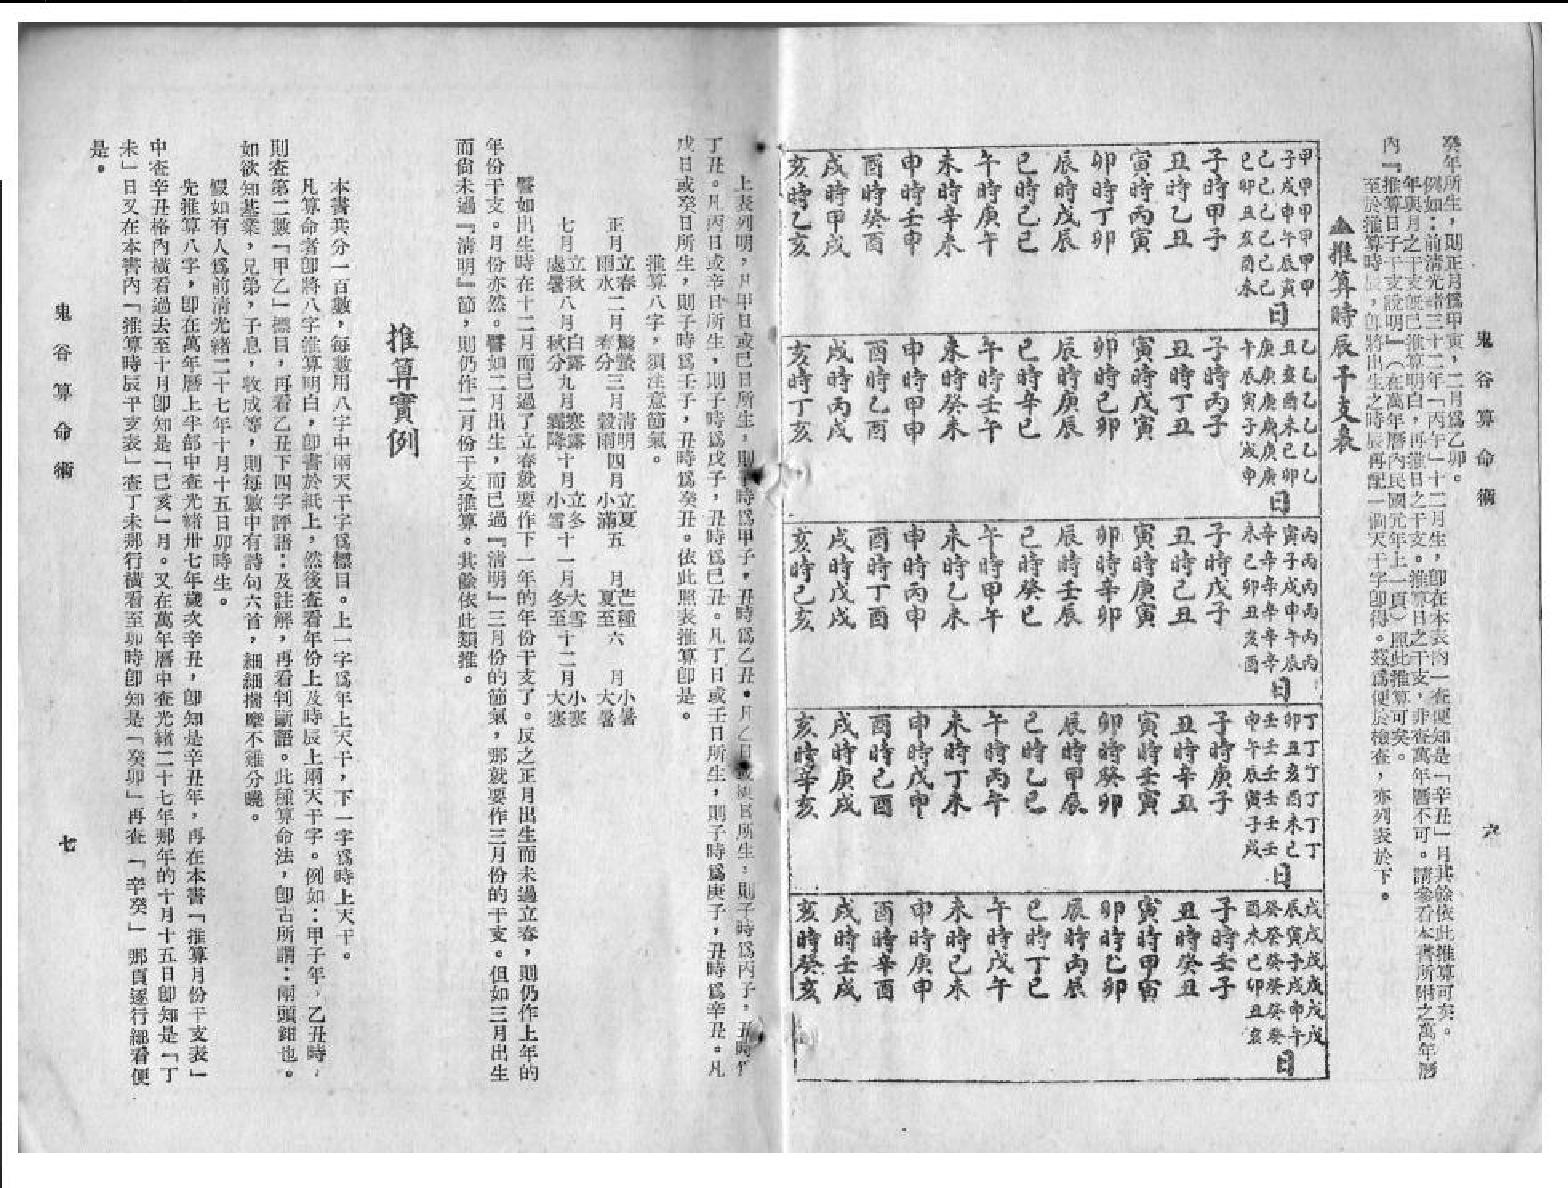 鬼谷算命術
六
癸年所生，則正月爲甲寅，二月爲乙卯。
例如：前清光緒三十二年「丙午」十二月生，卽在本表內一查便知是「辛丑」月其餘依此推算可矣。
年與月之干支旣已推算明白，再推日之干支。推算日之干支，非查萬年曆不可。請參看本書所附之萬年曆
內『推算日子干支說明』（在萬年曆內民國元年上一頁）照此推算可矣。
至於推算時辰，卽將出生之時辰再配一個天干字卽得。茲爲便於檢查，亦列表於下。
▲推算時辰干支表
甲子 甲戌 甲申 甲午 甲辰 甲寅 己巳 己卯 己丑 己亥 己酉 己未 日
子時甲子
丑時乙丑
寅時丙寅
卯時丁卯
辰時戊辰
巳時己巳
午時庚午
未時辛未
申時壬申
酉時癸酉
戌時甲戌
亥時乙亥
乙丑 乙亥 乙酉 乙未 乙巳 乙卯 庚午 庚辰 庚寅 庚子 庚戌 庚申 日
子時丙子
丑時丁丑
寅時戊寅
卯時己卯
辰時庚辰
巳時辛巳
午時壬午
未時癸未
申時甲申
酉時乙酉
戌時丙戌
亥時丁亥
丙寅 丙子 丙戌 丙申 丙午 丙辰 辛未 辛巳 辛卯 辛丑 辛亥 辛酉 日
子時戊子
丑時己丑
寅時庚寅
卯時辛卯
辰時壬辰
巳時癸巳
午時甲午
未時乙未
申時丙申
酉時丁酉
戌時戊戌
亥時己亥
丁卯 丁丑 丁亥 丁酉 丁未 丁巳 壬申 壬午 壬辰 壬寅 壬子 壬戌 日
子時庚子
丑時辛丑
寅時壬寅
卯時癸卯
辰時甲辰
巳時乙巳
午時丙午
未時丁未
申時戊申
酉時己酉
戌時庚戌
亥時辛亥
戊辰 戊寅 戊子 戊戌 戊申 戊午 癸酉 癸未 癸巳 癸卯 癸丑 癸亥 日
子時壬子
丑時癸丑
寅時甲寅
卯時乙卯
辰時丙辰
巳時丁巳
午時戊午
未時己未
申時庚申
酉時辛酉
戌時壬戌
亥時癸亥
上表列明，凡甲日或己日所生，則子時爲甲子，丑時爲乙丑。凡乙日或庚日所生，則子時爲丙子，丑時爲
丁丑。凡丙日或辛日所生，則子時爲戊子，丑時爲己丑。凡丁日或壬日所生，則子時爲庚子，丑時爲辛丑。凡
戊日或癸日所生，則子時爲壬子，丑時爲癸丑。依此照表推算卽是。
推算八字，須注意節氣。
正月立春雨水 二月驚蟄春分 三月清明穀雨 四月立夏小滿 五月芒種夏至 六月小暑大暑
七月立秋處暑 八月白露秋分 九月寒露霜降 十月立冬小雪 十一月大雪冬至 十二月小寒大寒
譬如出生時在十二月而已過了立春就要作下一年的年份干支了。反之正月出生而未過立春，則仍作上年的
年份干支。月份亦然。譬如二月出生，而已過『清明』三月份的節氣，那就要作三月份的干支。但如三月出生
而尙未過『清明』節，則仍作二月份干支推算。其餘依此類推。
推算實例
本書共分一百數，每數用八字中兩天干字爲標目。上一字爲年上天干，下一字爲時上天干。
凡算命者卽將八字推算明白，卽書於紙上，然後查看年份上及時辰上兩天干字。例如：甲子年，乙丑時，
則查第二數「甲乙」標目，再看乙丑下四字評語：及註解，再看判斷語。此種算命法，卽古所謂：兩頭鉗也。
如欲知基業，兄弟，子息，收成等，則每數中有詩句六首，細細揣摩不難分曉。
假如有人爲前清光緒二十七年十月十五日卯時生。
先推算八字，卽在萬年曆上半部中查光緒卅七年歲次辛丑，卽知是辛丑年，再在本書「推算月份干支表」
中查辛丑格內橫看過去至十月卽知是「己亥」月。又在萬年曆中查光緒二十七年那年的十月十五日卽知是「丁
未」日又在本書內「推算時辰干支表」查丁未那行橫看至卯時卽知是「癸卯」再查「辛癸」那頁逐行細看便
是。
鬼谷算命術
七